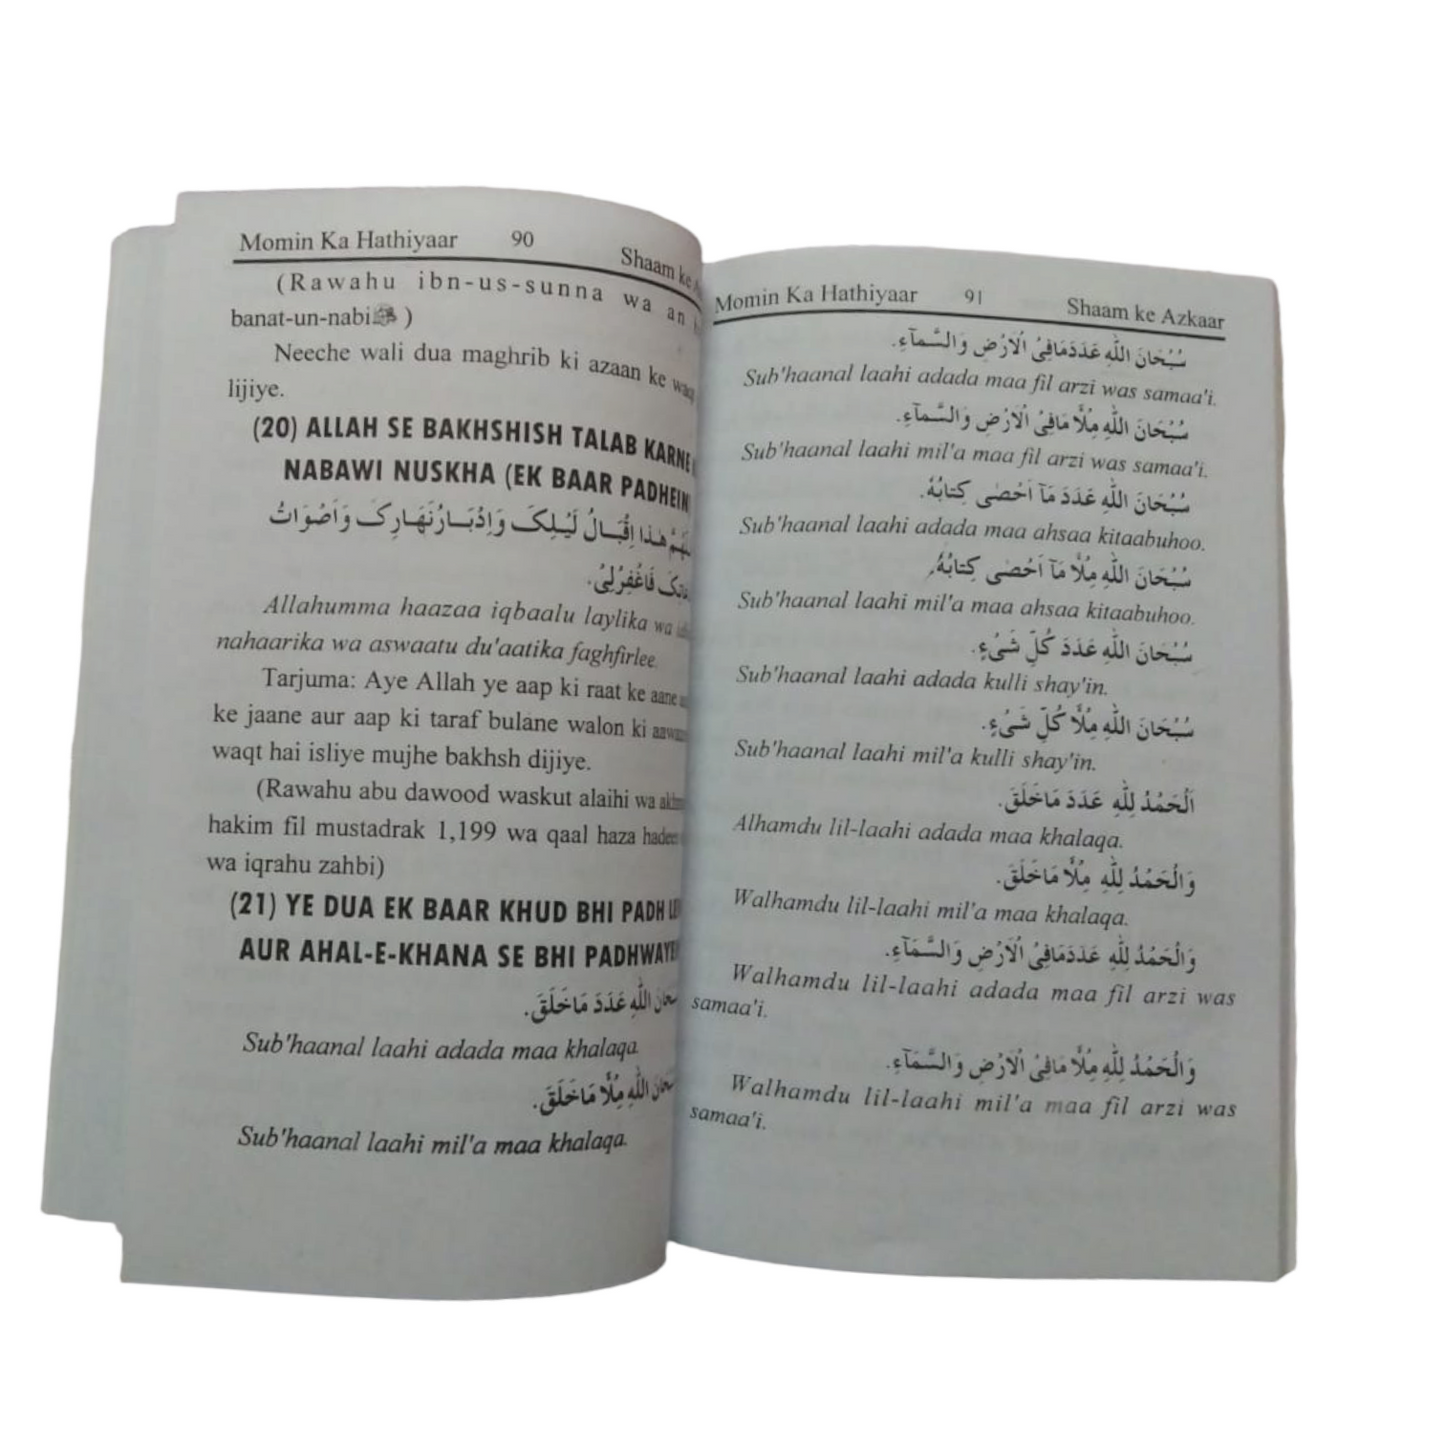 Momin Ka Hathiyaar 90 Shaam ke
(Rawahu ibn-us-sunna wa an
banat-un-nabiﷺ )
Neeche wali dua maghrib ki azaan ke waqt
lijiye.
(20) ALLAH SE BAKHSHISH TALAB KARNE
NABAWI NUSKHA (EK BAAR PADHEIN)
هٰذَا اِقْبَالُ لَيْلِکَ وَاِدْبَارُنَهَارِکَ وَاَصْوَاتُ
فَاغْفِرْلِیْ.
Allahumma haazaa iqbaalu laylika wa
nahaarika wa aswaatu du'aatika faghfirlee.
Tarjuma: Aye Allah ye aap ki raat ke aane
ke jaane aur aap ki taraf bulane walon ki
waqt hai isliye mujhe bakhsh dijiye.
(Rawahu abu dawood waskut alaihi wa
hakim fil mustadrak 1,199 wa qaal haza
wa iqrahu zahbi)
(21) YE DUA EK BAAR KHUD BHI PADH
AUR AHAL-E-KHANA SE BHI PADHWAYEIN
اللّٰهِ عَدَدَ مَاخَلَقَ.
Sub'haanal laahi adada maa khalaqa.
اللّٰهِ مِلْأَ مَاخَلَقَ.
Sub'haanal laahi mil'a maa khalaqa.
Momin Ka Hathiyaar 91 Shaam ke Azkaar
سُبْحَانَ اللّٰهِ عَدَدَمَافِیْ الْاَرْضِ وَالسَّمَآءِ.
Sub'haanal laahi adada maa fil arzi was samaa'i.
سُبْحَانَ اللّٰهِ مِلْأَ مَافِیْ الْاَرْضِ وَالسَّمَآءِ.
Sub'haanal laahi mil'a maa fil arzi was samaa'i.
سُبْحَانَ اللّٰهِ عَدَدَ مَآ اَحْصٰی کِتَابُهٗ.
Sub'haanal laahi adada maa ahsaa kitaabuhoo.
سُبْحَانَ اللّٰهِ مِلْأَ مَآ اَحْصٰی کِتَابُهٗ.
Sub'haanal laahi mil'a maa ahsaa kitaabuhoo.
سُبْحَانَ اللّٰهِ عَدَدَ کُلِّ شَیْءٍ.
Sub'haanal laahi adada kulli shay'in.
سُبْحَانَ اللّٰهِ مِلْأَ کُلِّ شَیْءٍ.
Sub'haanal laahi mil'a kulli shay'in.
اَلْحَمْدُ لِلّٰهِ عَدَدَ مَاخَلَقَ.
Alhamdu lil-laahi adada maa khalaqa.
وَالْحَمْدُ لِلّٰهِ مِلْأَ مَاخَلَقَ.
Walhamdu lil-laahi mil'a maa khalaqa.
وَالْحَمْدُ لِلّٰهِ عَدَدَمَافِیْ الْاَرْضِ وَالسَّمَآءِ.
Walhamdu lil-laahi adada maa fil arzi was
samaa'i.
وَالْحَمْدُ لِلّٰهِ مِلْأَ مَافِیْ الْاَرْضِ وَالسَّمَآءِ.
Walhamdu lil-laahi mil'a maa fil arzi was
samaa'i.